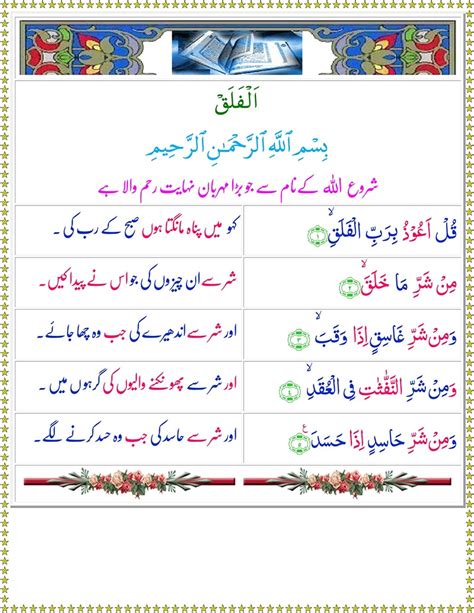 اَلْفَلَقْ
بِسْمِ اللَّهِ الرَّحْمَٰنِ الرَّحِيمِ
شروع اللہ کے نام سے جو بڑا مہربان نہایت رحم والا ہے
قُلْ اَعُوْذُ بِرَبِّ الْفَلَقِۙ ﴿۱﴾ کہو میں پناہ مانگتا ہوں صبح کے رب کی ۔
مِنْ شَرِّ مَا خَلَقَۙ ﴿۲﴾ شر سے ان چیزوں کی جو اس نے پیدا کیں۔
وَمِنْ شَرِّ غَاسِقٍ اِذَا وَقَبَۙ ﴿۳﴾ اور شر سے اندھیرے کی جب وہ چھا جائے۔
وَمِنْ شَرِّ النَّفّٰثٰتِ فِی الْعُقَدِۙ ﴿۴﴾ اور شر سے پھونکنے والیوں کی گرہوں میں ۔
وَمِنْ شَرِّ حَاسِدٍ اِذَا حَسَدَ ﴿۵﴾ اور شر سے حاسد کی جب وہ حسد کرنے لگے۔